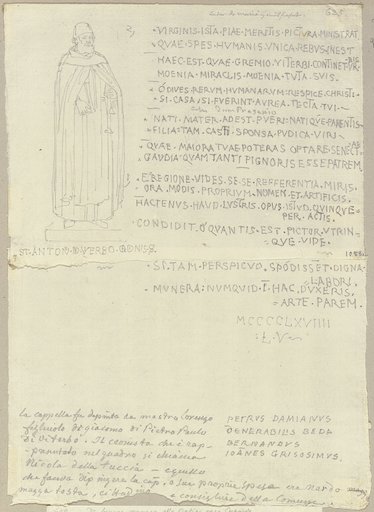 · VIRGINIS · ISTA · PIAE · MERITIS · PICTVRA · MINISTRAT
· QVAE · SPES · HVMANIS · VNICA · REBVS · INEST
HAEC · EST · QVAE · GREMIO · VITERBI · CONTINET
MOENIA · MIRACLIS · MOENIA · TVTA · SVIS ·
O DIVES · RERVM · HVMANARVM · RESPICE · CHRISTI
· SI · CASA · SI · FVERINT · AVREA · TECTA · TVI ·
NATI · MATER · ADEST · PVERI · NATIQVE · PARENTIS
· FILIA · TAM · CASTI · SPONSA · PVDICA · VIRI ·
QVAE · MAIORA · TVAE · POTERAS · OPTARE · SENECT
GAVDIA · QVAM · TANTI · PIGNORIS · ESSE · PATREM
E REGIONE · VIDES · SE · SE · REFFERENTIA · MIRIS
ORA · MODIS · PROPRIVM · NOMEN · ET · ARTIFICIS
HACTENVS · HAVD · LVSTRIS · OPVS · ISTVD · QVINQVE ·
PER · ACTIS ·
CONDIDIT · O QVANTIS · EST · PICTOR · VTRIN
· QVE · VIDE ·
ST · ANTON · D · VTERBO
SI · TAM · PERSPICVO · · DIGNA
· LABORI ·
· MVNERA · NVMQVID · I · HAC · DVXERIS ·
· ARTE · PAREM ·
MCCCCLXVIIII
· L · V ·
La cappella fu dipinta da mastro Lorenzo
figliuolo di giacomo di Pietro Paulo
di Viterbo. Il cronista che è rap-
presentato nel quadro si chiama
Nicola della Tuccia
che faceva dipingere la cap. a sue proprie spese era Nardo
mazzatosta, e consigliere della Comune.
PETRVS DAMIANVS
VENERABILIS BEDA
BERNANDVS
IOANES GRISOSIMVS.